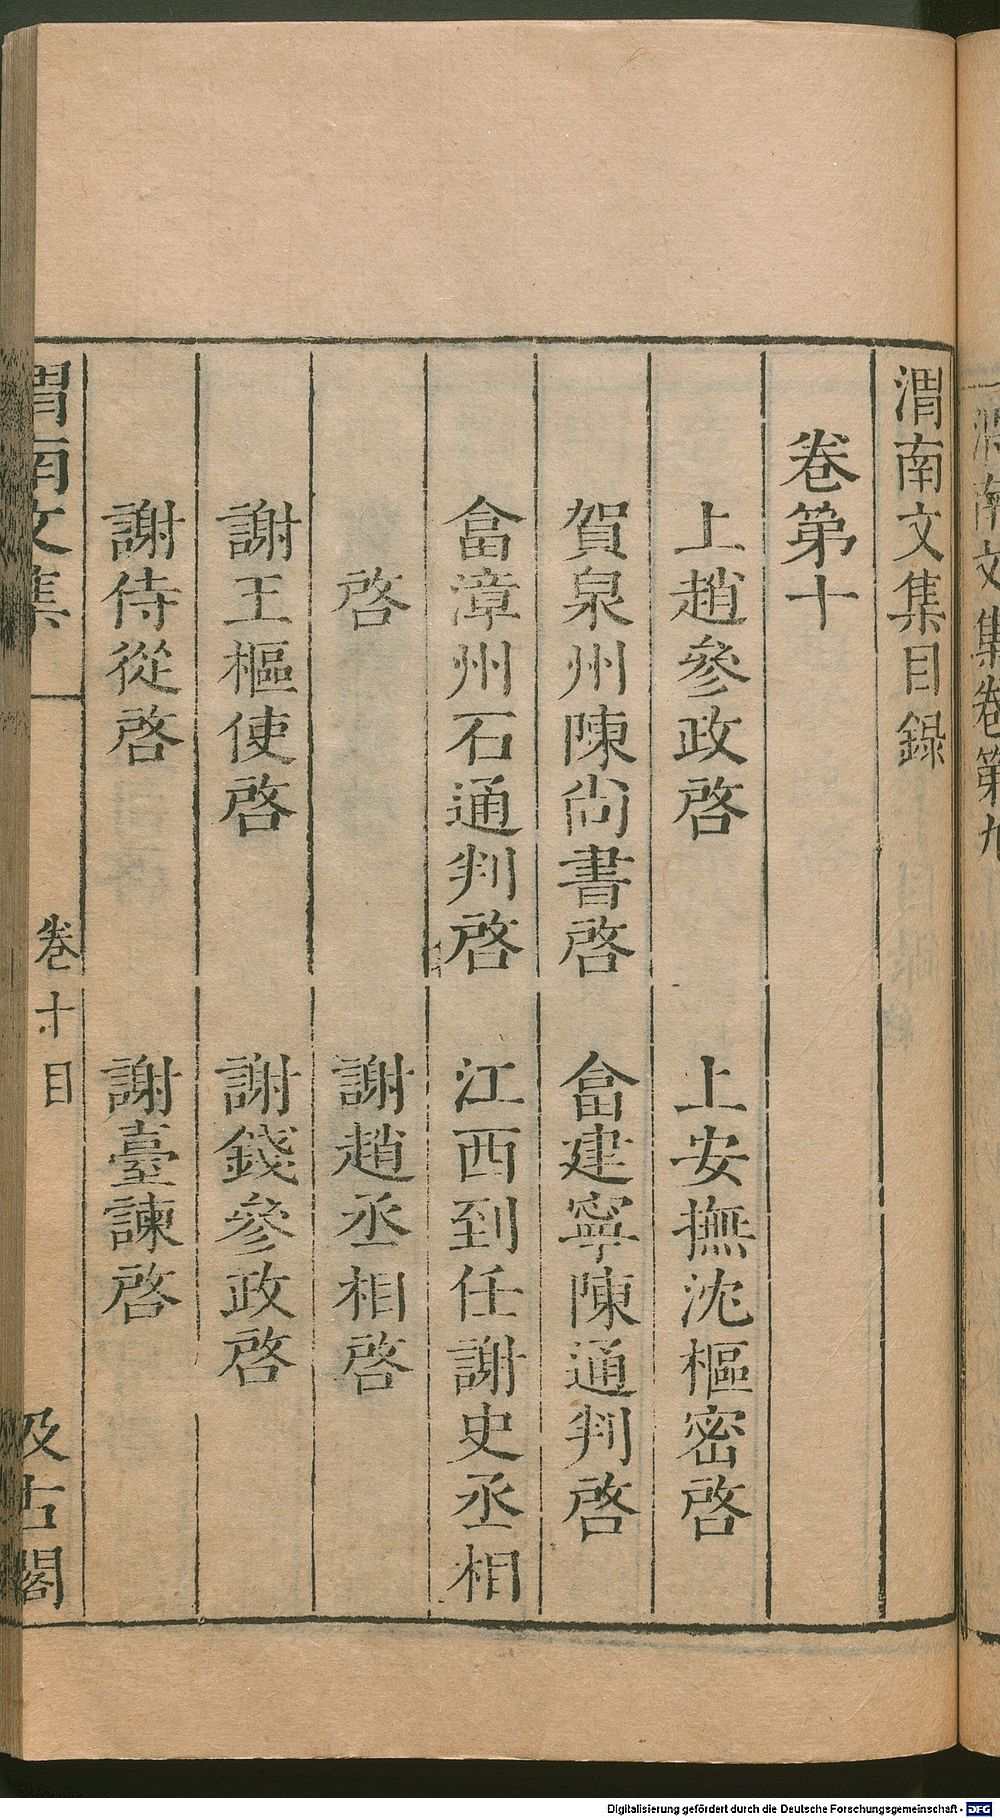 渭南文集卷第九
渭南文集目録
卷第十
上趙參政啓　上安撫沈樞密啓
賀泉州陳尚書啓　畣建寧陳通判啓
畣漳州石通判啓　江西到任謝史丞相
啓　謝趙丞相啓
謝王樞使啓　謝錢參政啓
謝侍從啓　謝臺諫啓
渭南文集　卷十目　汲古閣
Digitalisierung gefördert durch die Deutsche Forschungsgemeinschaft - DFG